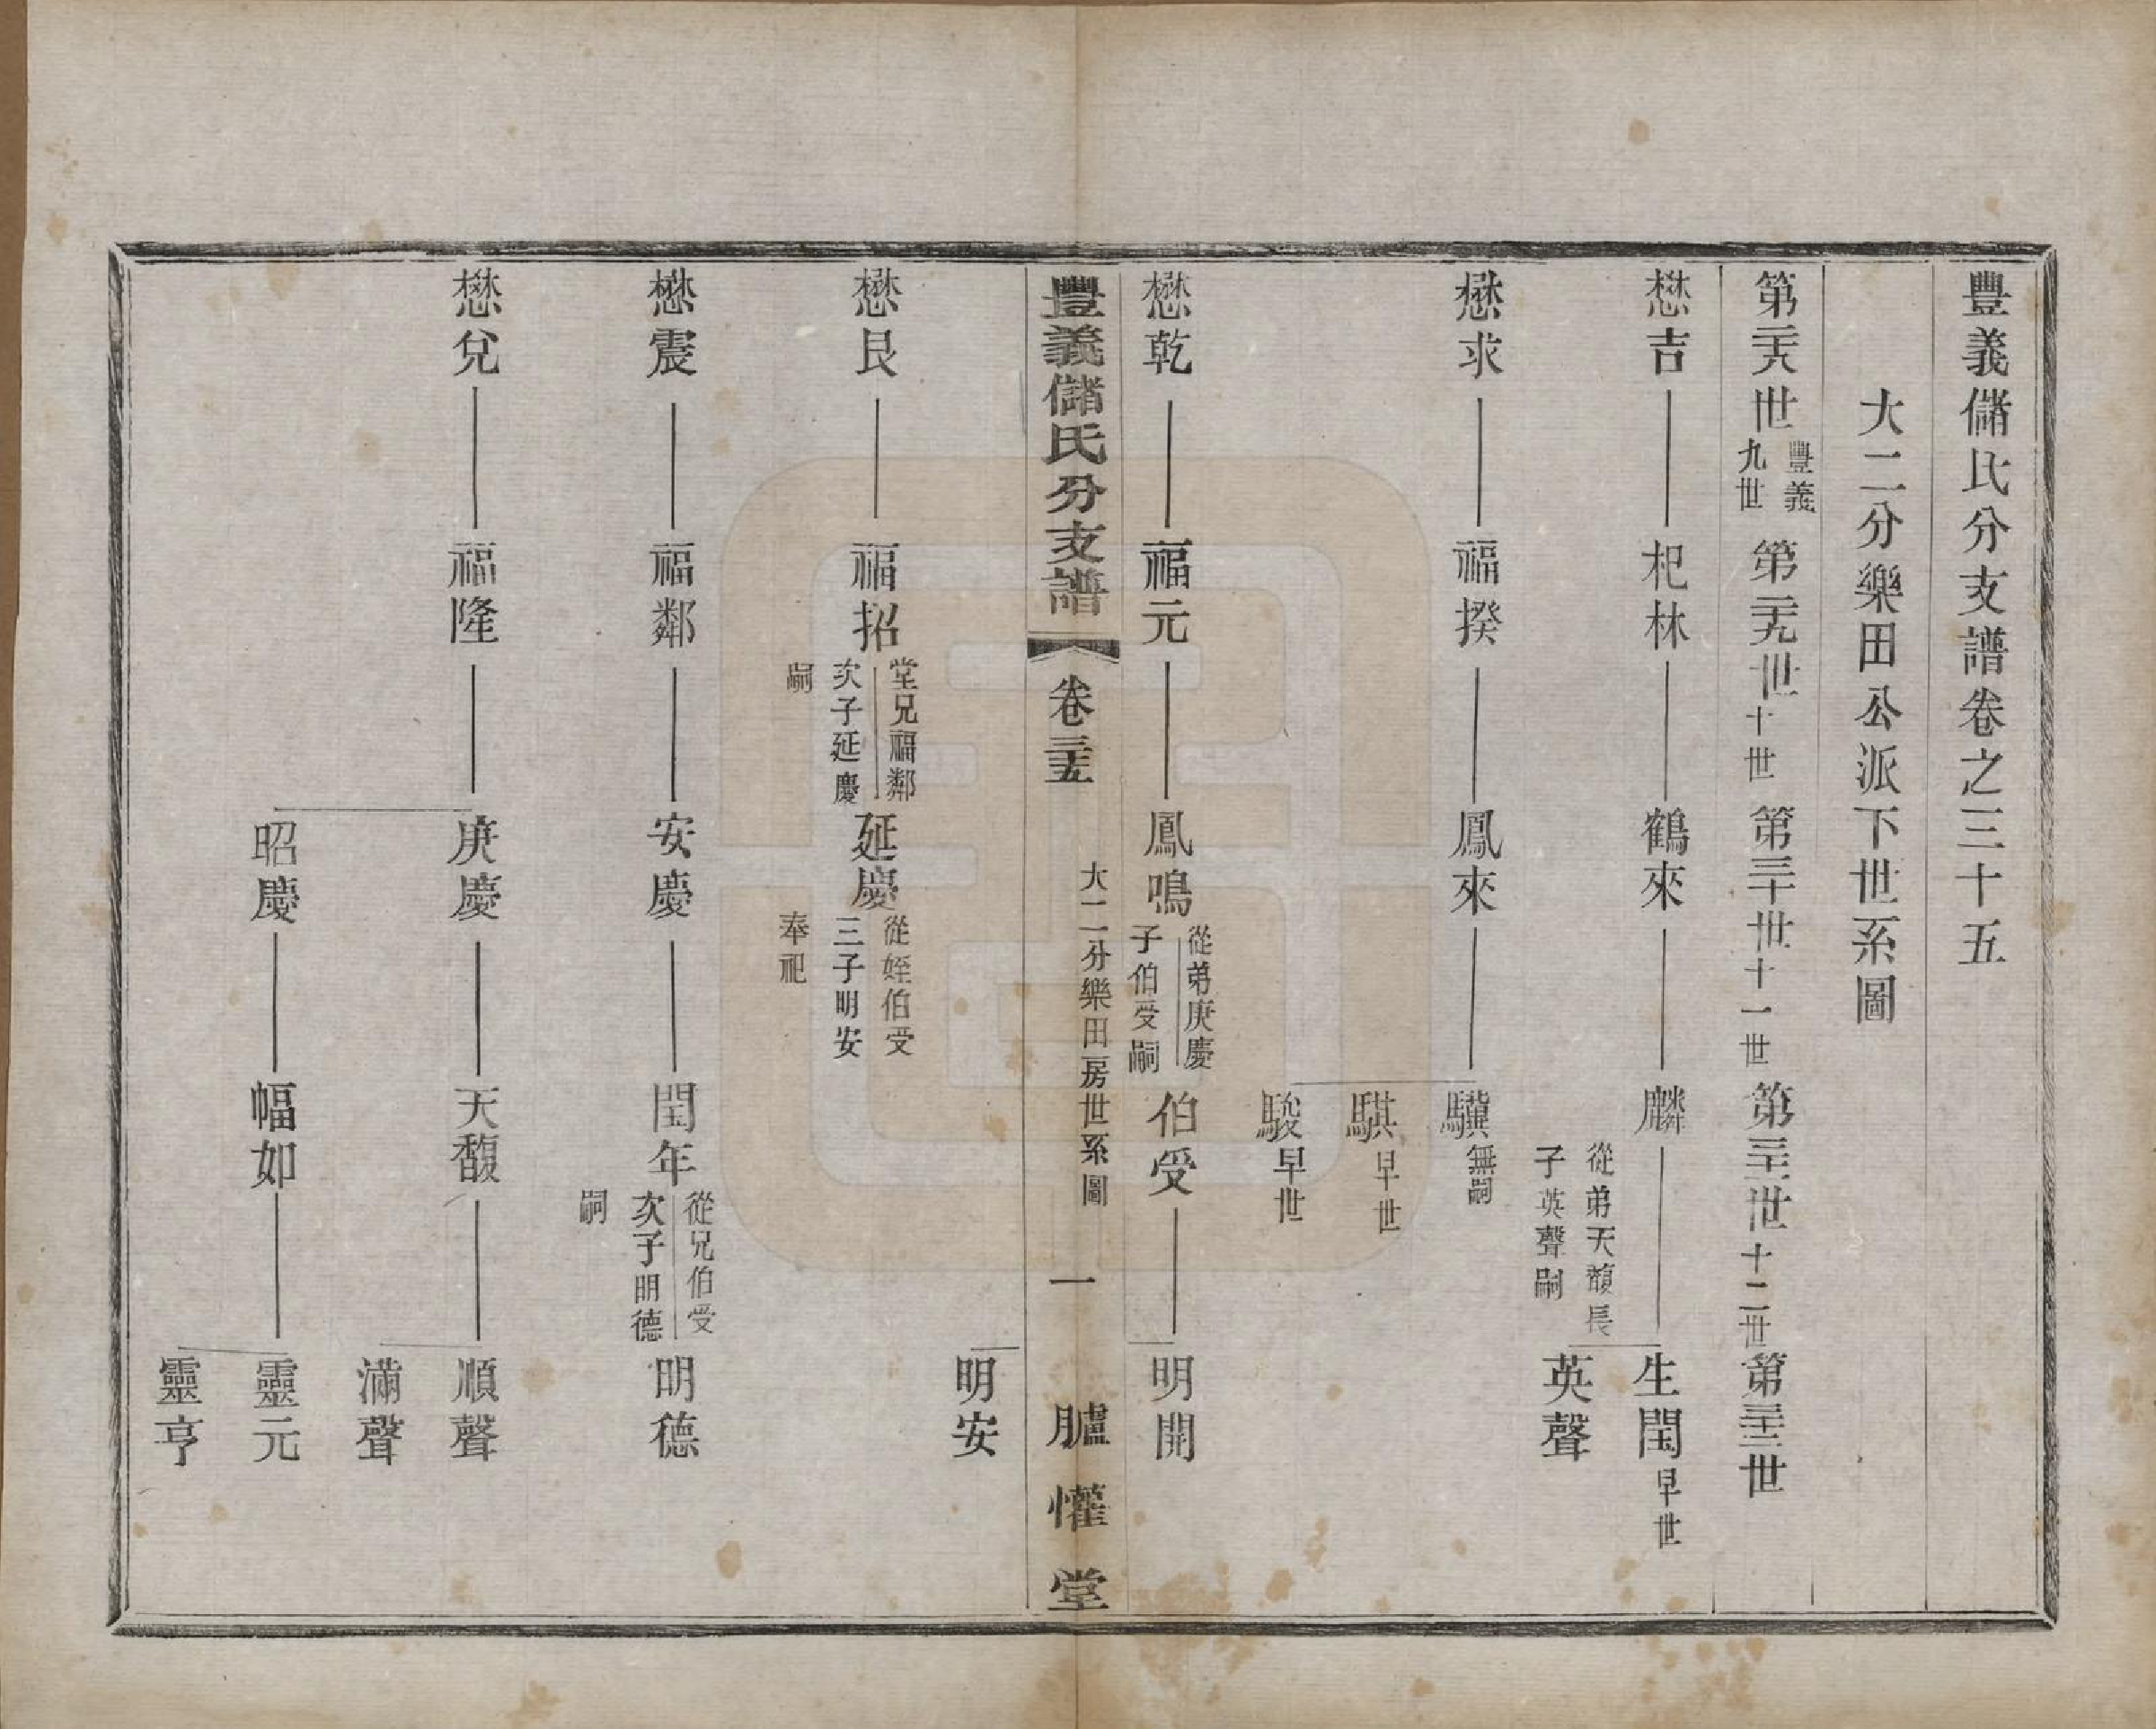 豐義儲氏分支譜卷之三十五
大二分樂田公派下世系圖
第二十八世 豐義九世 第二十九世 十世 第三十世 十一世 第三十一世 十二世 第三十二世
懋吉 杞林 鶴來 麟 從弟天馥長子英聲嗣 生閏 早世
英聲
懋求 福揆 鳳來 驥 無嗣
騏 早世
駿 早世
懋乾 福元 鳳鳴 從弟庚慶子伯受嗣 伯受 明開
豐義儲氏分支譜 卷三十五 大二分樂田房世系圖 一 臚懽堂
明安
懋艮 福招 堂兄福鄰次子延慶嗣 延慶 從姪伯受三子明安奉祀
懋震 福鄰 安慶 閏年 從兄伯受次子明德嗣 明德
懋兌 福隆 庚慶 天馥 順聲
滿聲
昭慶 幅如 靈元
靈亨